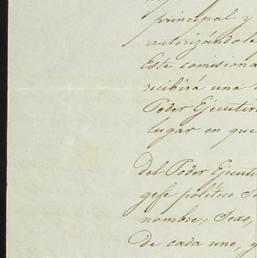 principal y
autorizándole
Este comisiona
recibirá una
Poder Ejecutiv
lugar en que
Del Poder Ejecuti
gefe político
nombre, Sexo,
De cada uno, y